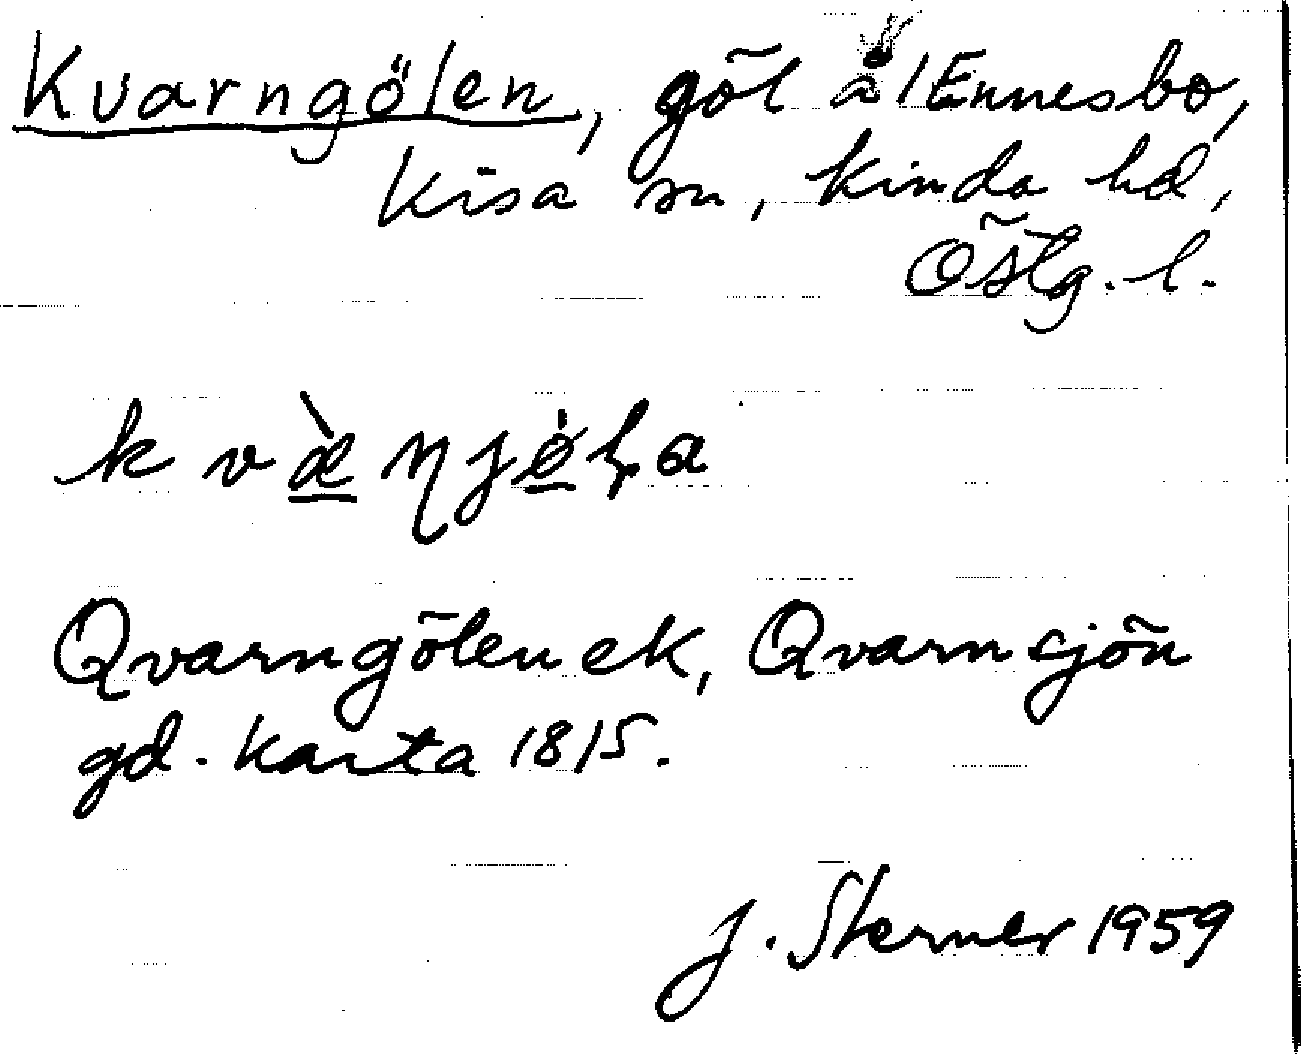 Kvarngölen, göl å Ennesbo,
Kisa sn, Kinda hd,
Östg. l.
kvæ̀ŋjø̀ɭa
Qvarngölen ek, Qvarnsjön
gd. karta 1815.
J. Sterner 1959